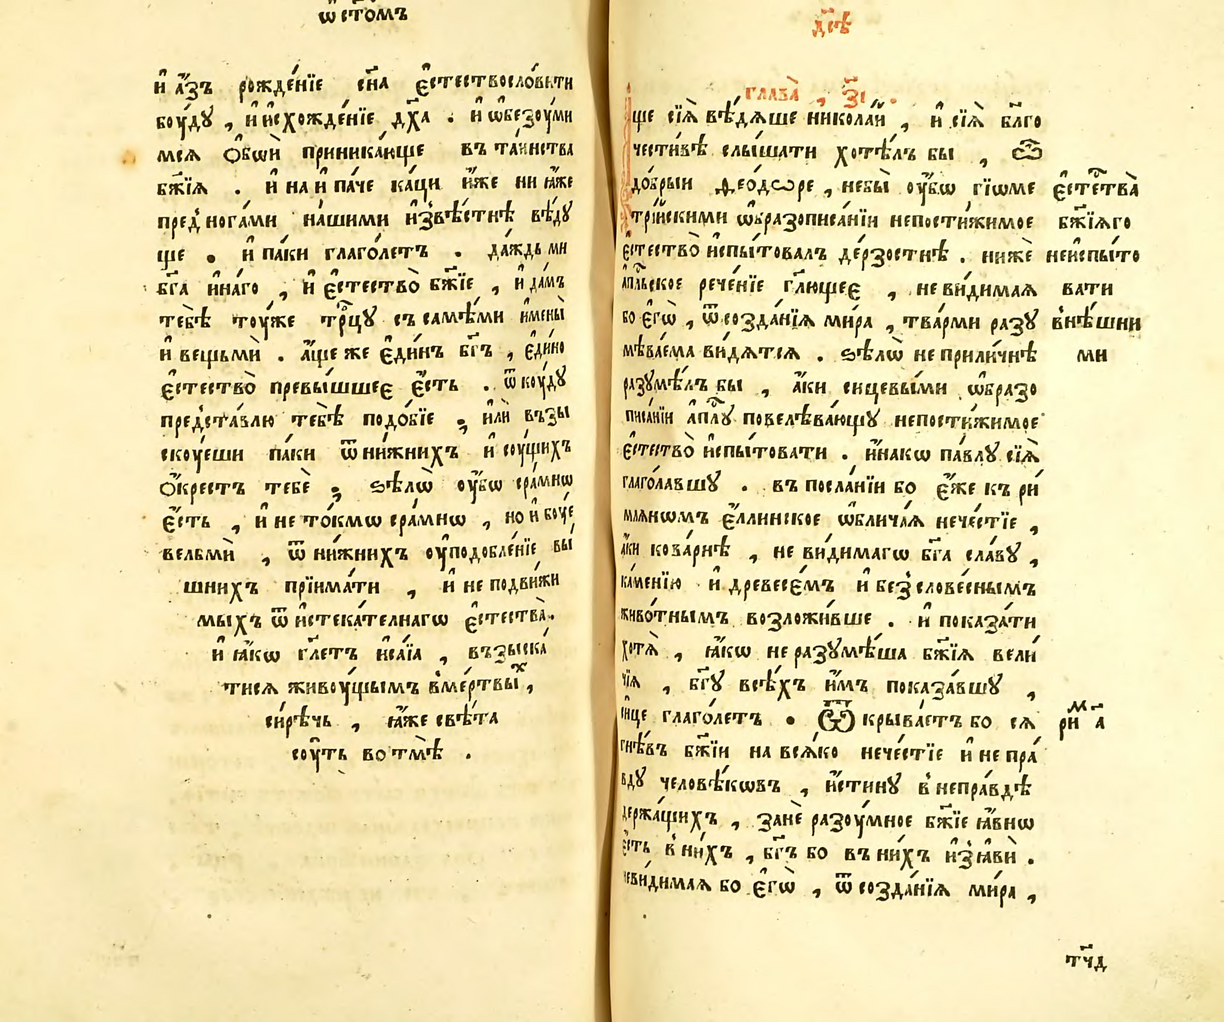 ѡ҆ ст҃омъ
и҆ а҆́зъ рожде́нїе сн҃а є҆стествосло́вити
бѹ́дꙋ , и҆ и҆схожде́нїе дх҃а . и҆ ѡ҆безѹ́ми
мсѧ ѻ҆́бѡи҆ приника́юще въ та́инства
бж҃їѧ . и҆ на и҆ па́че ка́ци и҆́же ни ꙗ҆́же
пред̾ нога́ми на́шими и҆звѣ́стнѣ вѣ́дꙋ
ще . и҆ па́ки глаго́летъ . да́ждь ми
бг҃а и҆на́го , и҆ є҆стество̀ бж҃їе , и҆ да́мъ
тебѣ̀ тѹ́же трⷪ҇цꙋ съ самѣ́ми и҆мены̀
и҆ вещьмѝ . а҆́ще же є҆ди́нъ бг҃ъ , є҆ди́но
є҆стество̀ превы́шшее є҆́сть . ѿ кѹ́дꙋ
предста́влю тебѣ̀ подо́бїе , и҆лѝ възы́
скѹеши па́ки ѿ ни́жнихъ и҆ сѹ́щихъ
ѻ҆́крестъ тебѐ , ѕѣлѡ̀ ѹ҆́бѡ сра́мнѡ
є҆́сть , и҆ не то́кмѡ сра́мнѡ , но и҆ бѹ́е
вельмѝ , ѿ ни́жнихъ ѹ҆подобле́нїе вы́
шнихъ прїима́ти , и҆ не подви́жи
мыхъ ѿ и҆стека́телнагѡ є҆стества̀ .
и҆ ꙗ҆́кѡ гл҃етъ и҆са́їа , възыска́
тисѧ живѹ́щымъ в̾ме́ртвыⷯ ,
си́рѣчь , ꙗ҆́же свѣ́та
сѹ́ть во тмѣ̀ .
дс҃ѣ
глава̀ , з҃і .
ще сїѧ̀ вѣ́дѧше никола́й , и҆ сїѧ̀ бл҃го
чести́вѣ слы́шати хотѣ́лъ бы , ѽ
до́брыи ѳео́дѡре , не бы̀ ѹ҆́бѡ гїѡме
три́йскими ѡ҆бразописа́нїи непости́жимое
є҆стество̀ и҆спы́товалъ де́рзостнѣ . нижѐ
а҆пⷭ҇льское рече́нїе гл҃ющее , не ви́димаѧ
бо є҆гѡ̀ , ѿ созда́нїѧ ми́ра , тва́рми разꙋ
мѣва́ема ви́дѧтсѧ . ѕѣлѡ̀ не прили́чнѣ
разꙋмѣ́лъ бы , а҆́ки сицевы́ми ѡ҆бразо
писа́нїи а҆пⷭ҇лꙋ повелѣва́ющꙋ непости́жимое
є҆стество̀ и҆спы́товати . и҆на́кѡ па́влꙋ сїѧ̀
глаго́лавшꙋ . въ посла́нїи бо є҆́же къ ри́
млѧнѡмъ є҆́ллинское ѡ҆блича́ѧ нече́стїе ,
а҆́ки кова́рнѣ , не ви́димагѡ бг҃а сла́вꙋ ,
ка́менїю и҆ древесе́мъ и҆ без̾слове́снымъ
живо́тнымъ возложи́вше . и҆ показа́ти
хотѧ̀ , ꙗ҆́кѡ не разꙋмѣ́ша бж҃їѧ вели́
чїѧ , бг҃ꙋ всѣ́хъ и҆́мъ показа́вшꙋ ,
си́це глаго́летъ . Ѿкрыва́етъ бо сѧ
гнѣ́въ бж҃їи на всѧ́ко нече́стїе и҆ не пра́
вдꙋ человѣ́кѡвъ , и҆́стинꙋ в̾ непра́вдѣ
держа́щихъ , занѐ разѹ́мное бж҃їе ꙗ҆́внѡ
є҆́сть в̾ ни́хъ , бг҃ъ бо въ ни́хъ и҆з̾ꙗвѝ .
неви́димаѧ бо є҆гѡ̀ , ѿ созда́нїѧ ми́ра ,
є҆стⷭ҇тва̀
бж҃їѧго
неи҆спы́то
вати
внѣ́шни
ми
риⷨ а҃
тч҃д